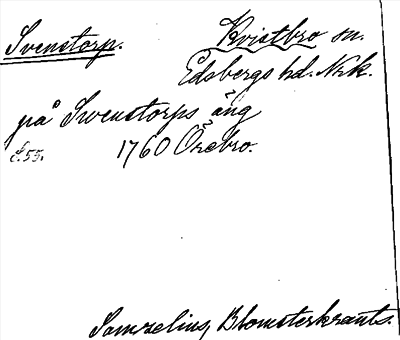 Svenstorp. Kvistbro sn.
Edsbergs hd. Nrk.
på Swenstorps äng
s. 55. 1760 Örebro.
Samzelius, Blomsterkrants.